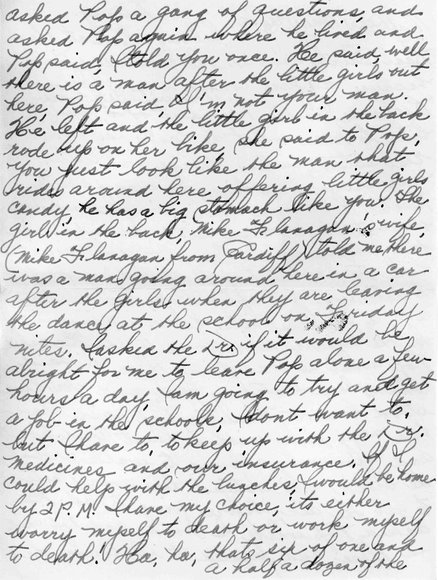 asked Pop a gang of questions, and
asked Pop again where he lived and
Pop said, I told you once. He said, well
there is a man after the little girls out
here, Pop said, I'm not your man.
He left and the little girl in the back
rode up on her bike, she said to Pop,
you just look like the man that
rides around here offering little girls
candy, he has a big stomach like you. The
girl in the back, Mike Flanagan's wife,
(Mike Flanagan from Cardiff) told me there
was a man going around here in a car
after the girls when they are leaving
the dance at the school on Friday
nites. I asked the Dr. if it would be
alright for me to leave Pop alone a few
hours a day, I am going to try and get
a job in the schools, I don't want to,
but I have to, to keep up with the Dr.
medicines and our insurance. If I
could help with the lunches, I would be home
by 2 P.M. I have my choice, its either
worry myself to death or work myself
to death. Ha, ha, thats six of one and
a half a dozen of the